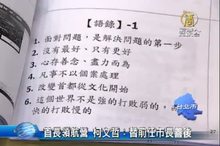 新唐人
【語錄】-1
1. 面對問題，是解決問題的第一步
2. 沒有最好，只有更好
3. 心存善念，盡力而為
4. 凡事不以個案處理
5. 改變首都從文化開始
6. 這個世界不是強的打敗弱的，
快的打敗慢的
台北市
首長領航營 柯文哲：替前任市長善後